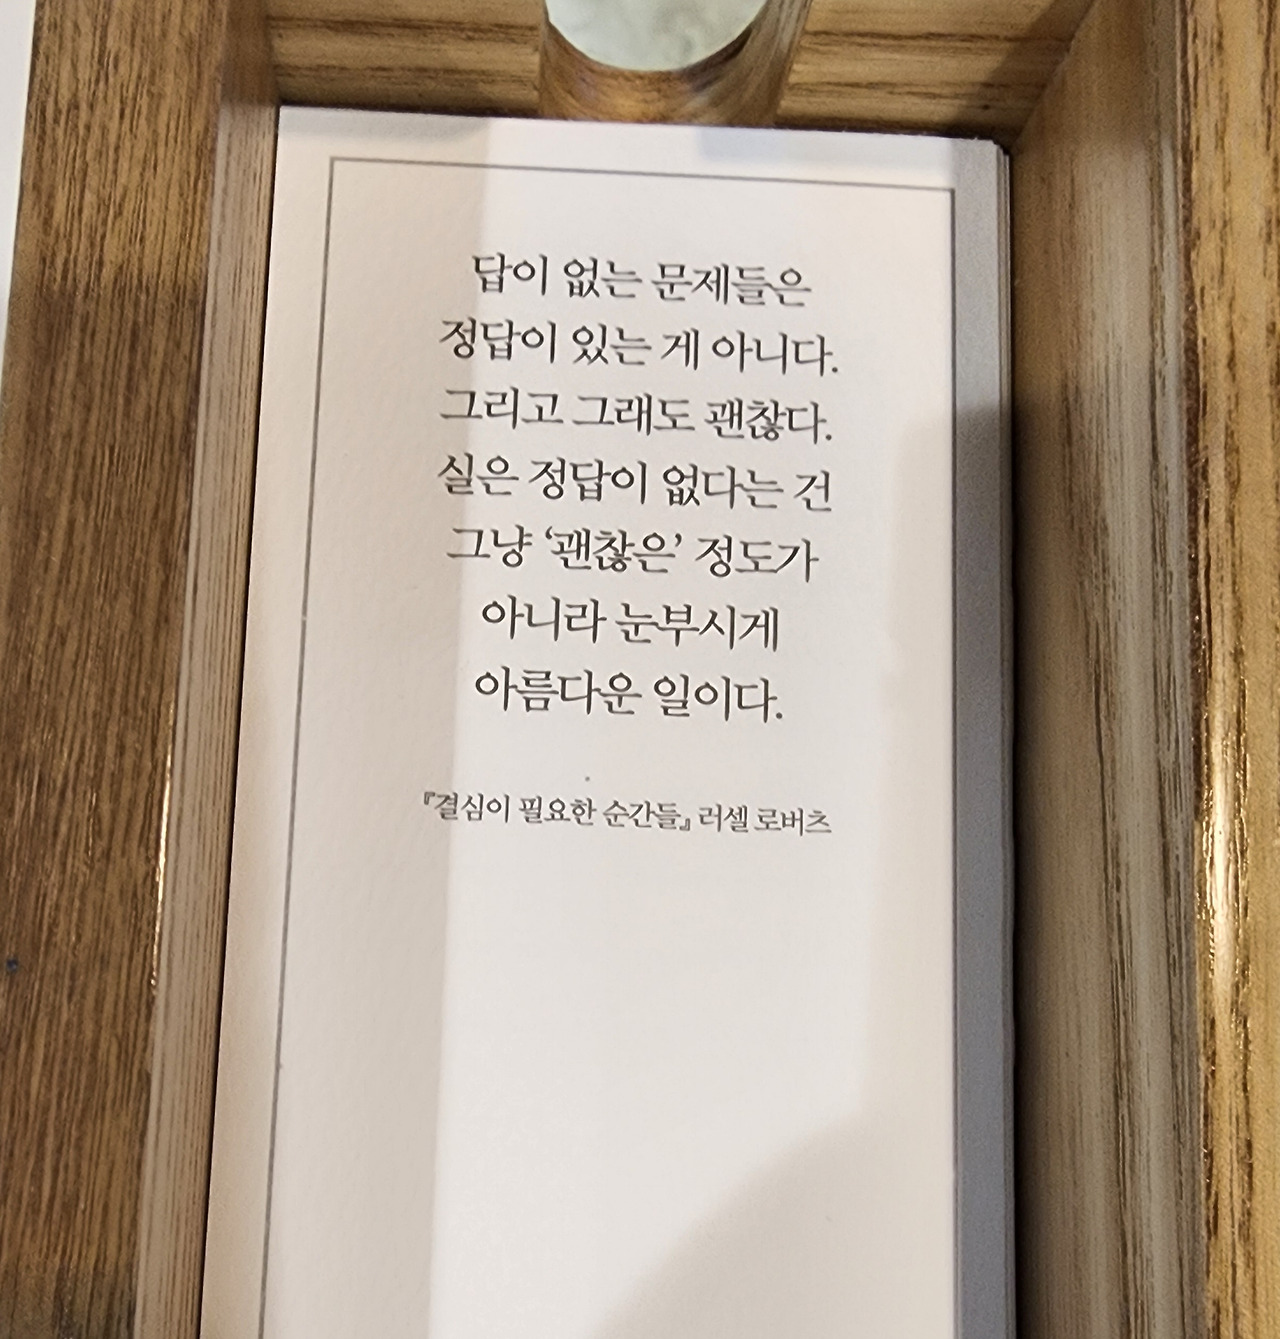 답이 없는 문제들은
정답이 있는 게 아니다.
그리고 그래도 괜찮다.
실은 정답이 없다는 건
그냥 ‘괜찮은’ 정도가
아니라 눈부시게
아름다운 일이다.
『결심이 필요한 순간들』 러셀 로버츠